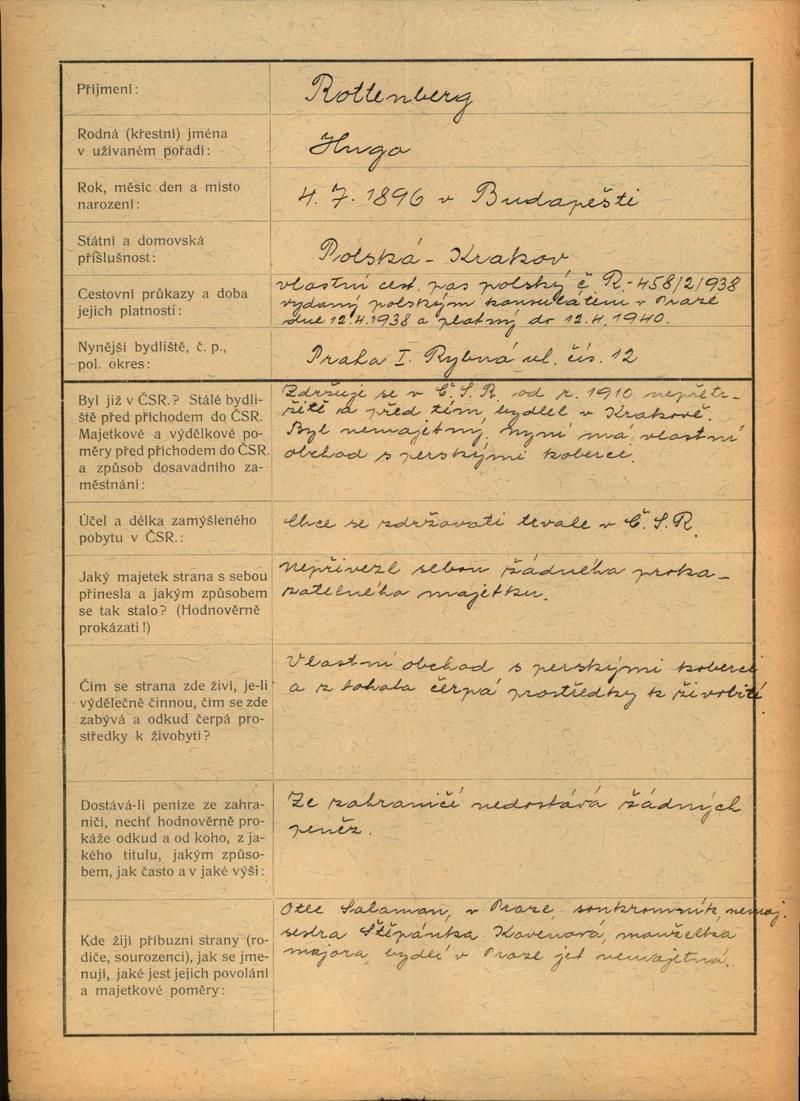 Příjmení:
Rottenberg
Rodná (křestní) jména
v užívaném pořadí:
Hugo
Rok, měsíc den a místo
narození:
4. 7. 1896 v Budapešti
Státní a domovská
příslušnost:
Polská - Krakov
Cestovní průkazy a doba
jejich platnosti:
vlastní cest. pas polský č. R.-458/2/1938
vydaný polským konsulátem v Praze
dne 12.4.1938 a platný do 12.4.1940.
Nynější bydliště, č. p.,
pol. okres:
Praha I. Rybná ul. čís. 12
Byl již v ČSR.? Stálé bydli-
ště před příchodem do ČSR.
Majetkové a výdělkové po-
měry před příchodem do ČSR.
a způsob dosavadního za-
městnání:
Zdržuje se v Č.S.R. od r. 1910 nepřetr-
žitě a před tím bydlel v Krakově.
Byl nemajetný, nyní má vlastní
obchod s perskými koberci.
Účel a délka zamýšleného
pobytu v ČSR.:
Chce se zdržovati trvale v Č.S.R.
Jaký majetek strana s sebou
přinesla a jakým způsobem
se tak stalo? (Hodnověrně
prokázati!)
Nepřivezl sebou žádného proka-
zatelného majetku.
Čím se strana zde živí, je-li
výdělečně činnou, čím se zde
zabývá a odkud čerpá pro-
středky k živobytí?
Vlastní obchod s perskými koberci
a z tohoto čerpá prostředky k živobití
Dostává-li peníze ze zahra-
ničí, nechť hodnověrně pro-
káže odkud a od koho, z ja-
kého titulu, jakým způso-
bem, jak často a v jaké výši:
Ze zahraničí nedostává žádných
peněz.
Kde žijí příbuzní strany (ro-
diče, sourozenci), jak se jme-
nují, jaké jest jejich povolání
a majetkové poměry:
Otec Salaman, v Praze, soukromník, nemaj.
sestra Štěpánka, manželka
majora, bydlí v Praze jet nemajetná.